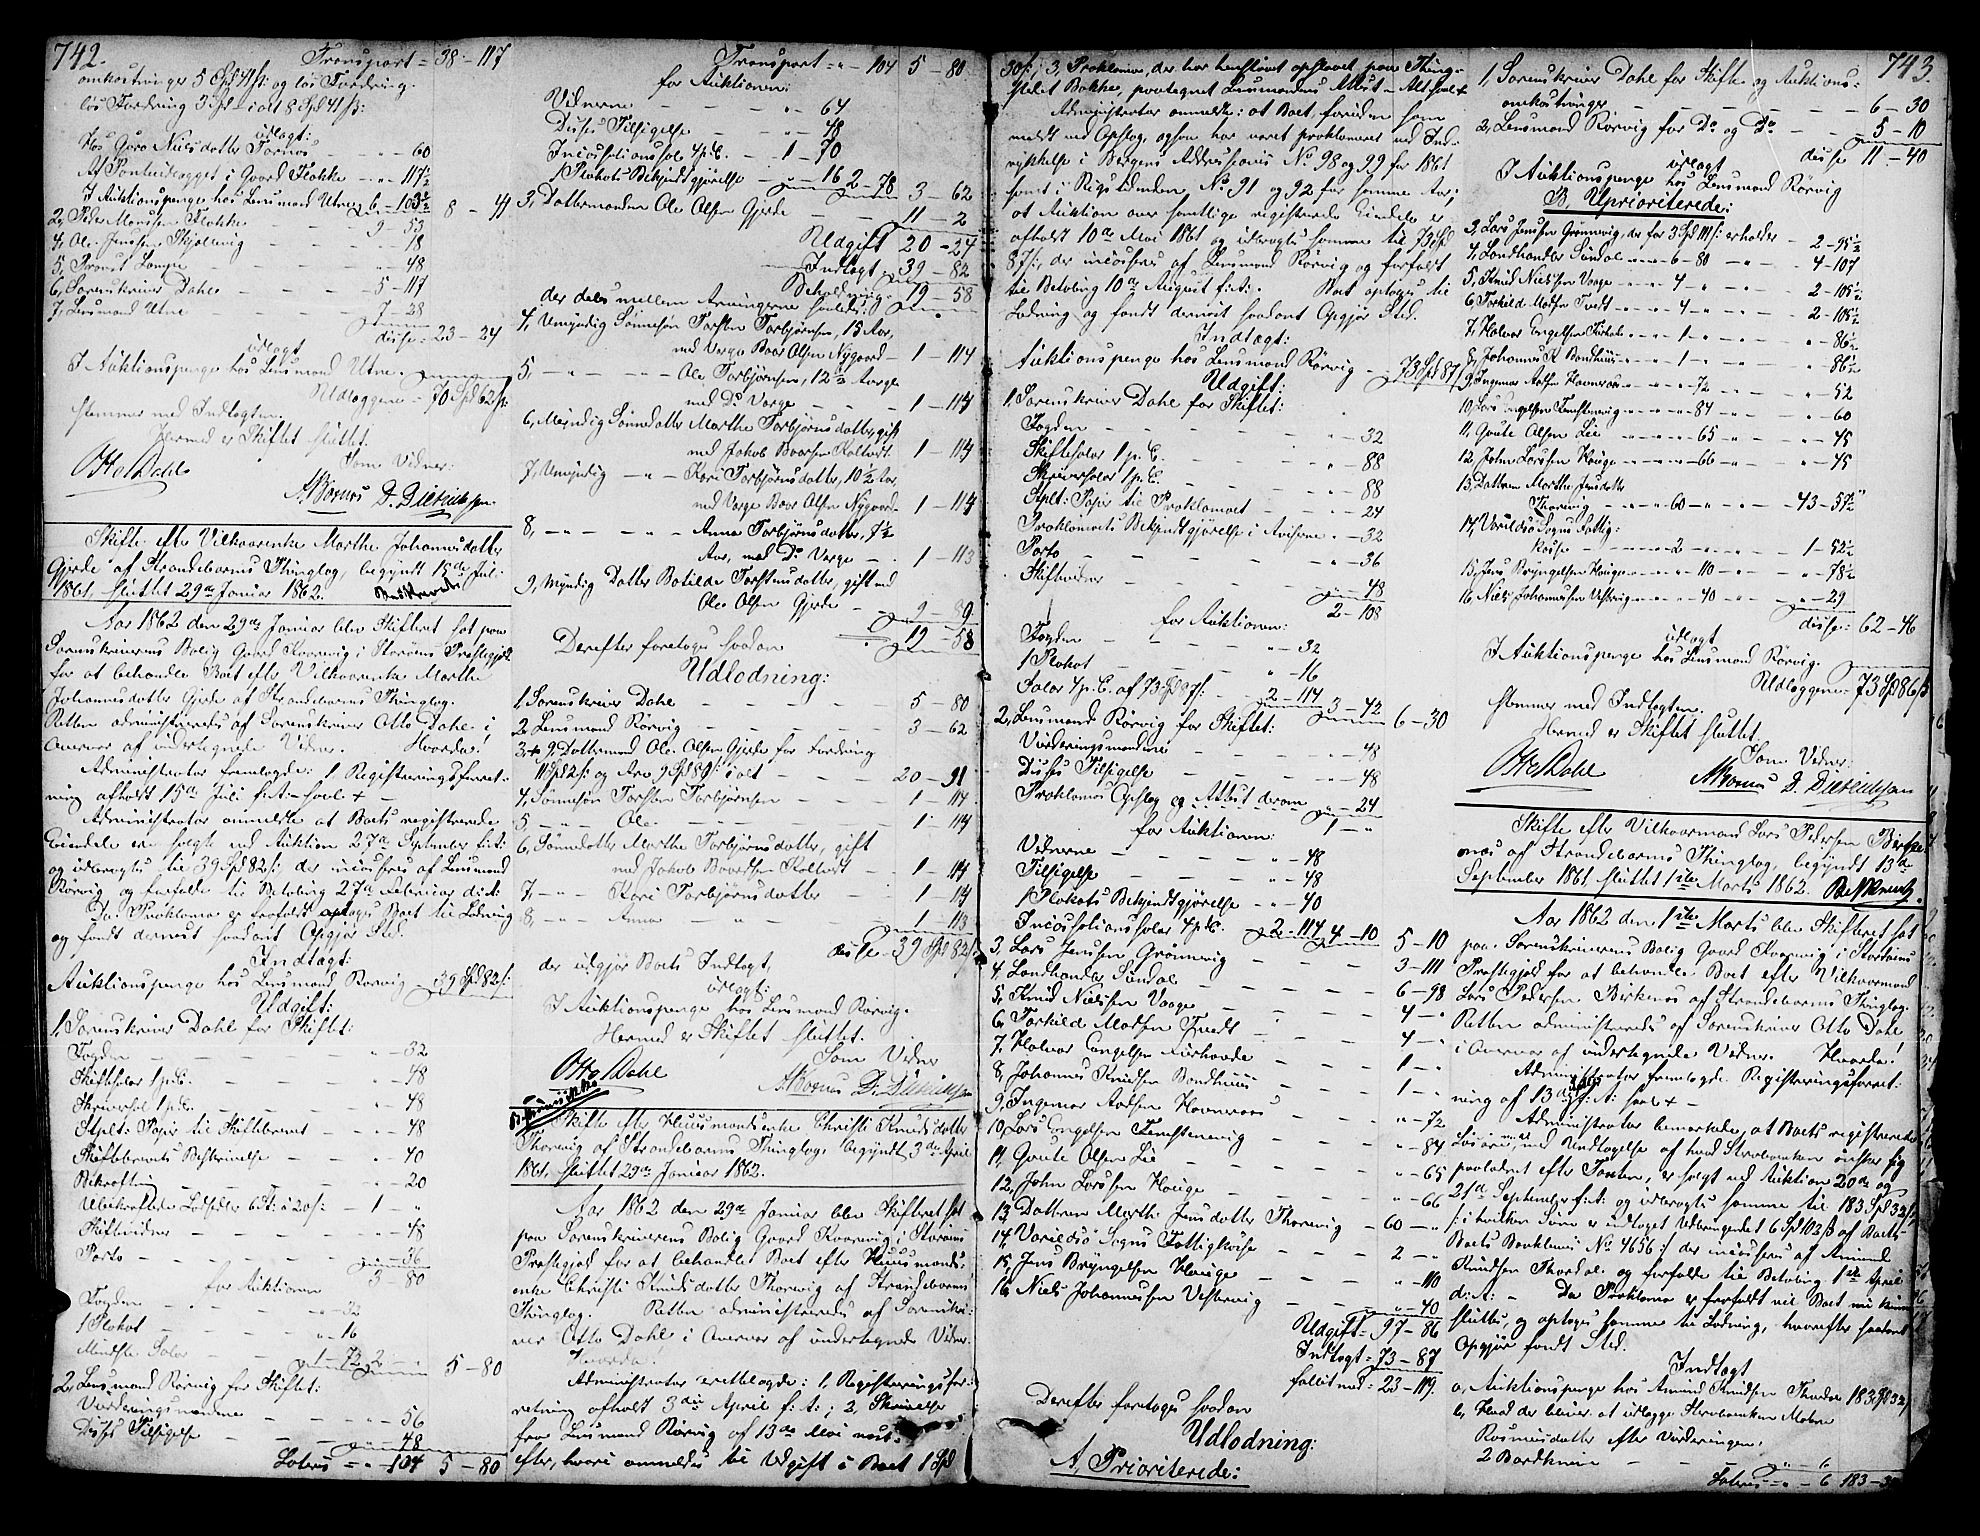 742.
Transport = 38 - 117
omkostninger 5 Spd 41 ß: og løs Fordring:
løs Fordring 3 Spd - i alt 8 Spd 41 ß:
udlagt:
Hos Guro Nielsdatter Tornæs - - " - 60
I Auktionspenge hos Lensmand Utne 6 - 103½ 8 - 41
4, Ole Jenssen Skjellevig - - - " - 18
5, Provst - - - " - 48
6, Sorenskriver Dahl - - - 5 - 117
7, Lensmand Utne - - - 7 - 28
disse - 23 - 24
udlagt
I Auktionspenge hos Lensmand Utne.
Udlæggene - 70 Spd 62 ß:
stemmer med Indtægten.
Hermed er Skiftet sluttet.
Otto Dahl
Som Vidner:
D. Diedrichsen
Skifte efter Vilkaarenke Marthe Johannesdatter
Gjerde af Strandebarms Thinglag, begyndt 15de Juli
1861, sluttet 29de Januar 1862.
Aar 1862 den 29de Januar blev Skifteret sat paa
Sorenskriverens Bolig Gaard Kvarvig i Storøens Præstegjæld
for at behandle Boet efter Vilkaarenke Marthe
Johannesdatter Gjerde af Strandebarms Thinglag.
Retten administreredes af Sorenskriver Otto Dahl i
Overvær af undertegnede Vidner. Hvorda!
Administrator fremlagde: 1, Registreringsforret-
ning afholdt 15de Juli f: A: - saal + -
Administrator anmeldte at Boets registrerede
Eiendele ere solgte ved Auktion 27de September f: A:
og udbragtes til 39 Spd 82 ß:, der incasseres af Lensmand
Rørvig og forfalde til Betaling 27de Februar d: A:
Da Proklama er forfaldt optages Boet til Lodning
og fandt dernæst saadant Opgjør Sted.
Indtægt:
Auktionspenge hos Lensmand Rørvig - 39 Spd 82 ß:
Udgift:
1, Sorenskriver Dahl for Skiftet:
Fogden - - - " - 32
Skiftesalær 1 p.C. - - - " - 48
Skriversal 1 p.C. - - - " - 48
Stplt: Papir til Skiftebrevet - - " - 48
Skiftebrevets Beskrivelse - - " - 40
Bekræftning - - - " - 20
Ubekræftede Lodsedler 6 St: à 20 ß: - 1 - "
Skiftevidner - - - " - 48
Porto - - - " - 36
3 - 80
for Auktionen
Fogden - - - " - 32
1 Plakat - - - " - 16
Mindste Salær - - - 1 - 72 2 - " 5 - 80
2, Lensmand Rørvig for Skiftet:
Vurderingsmændene - - - " - 56
Disses Tilsigelse - - - " - 48
Lateris = " - 104 5 - 80
Transport = " - 104 5 - 80
for Auktionen:
Vidnerne - - - " - 64
Disses Tilsigelse - - " - 48
Incassationssal 4 p.C. - 1 - 70
1 Plakats Bekjendtgjørelse - " - 16 2 - 78 3 - 62
3, Dattermanden Ole Olsen Gjerde - - 11 - 2
Udgift 20 - 24
Indtægt, 39 - 82
Beholdning - 19 - 58
der deles mellem Arvingerne saaledes:
4, Umyndig Sønnesøn Torsten Torbjørnsen, 15 Aar,
med Værge Baar Olsen Nygaard - 1 - 114
5, - " - - " - Ole Torbjørnsen, 12½ Aar gl
med Do Værge - - - 1 - 114
6, Myndig Sønnedatter Marthe Torbjørnsdatter, gift
med Jakob Baarsen Kaltvedt. 1 - 114
7, Umyndig - " - Kari Torbjørnsdatter, 10½ Aar,
med Værge Baar Olsen Nygaard - 1 - 114
8, - " - - " - Anna Torbjørnsdatter, 7½
Aar, med Do Værge - - 1 - 113
9, Myndig Datter Botilde Torstensdatter, gift med
Ole Olsen Gjerde - - 9 - 89
19 - 58
Derefter foretoges saadan
Udlodning:
1, Sorenskriver Dahl - - - 5 - 80
2, Lensmand Rørvig - - - 3 - 62
3, + 9, Dattermand Ole Olsen Gjerde for Fordring
11 Spd 2 ß: og Arv 9 Spd 89 ß: i alt - - 20 - 91
4, Sønnesøn Torsten Torbjørnsen - - 1 - 114
5, - " - Ole - " - - - 1 - 114
6, Sønnedatter Marthe Torbjørnsdatter, gift
med Jakob Baardsen Kaltvedt - - 1 - 114
7, - " - Kari Torbjørnsdatter - - 1 - 114
8, - " - Anna - " - - - 1 - 113
disse - 39 Spd 82 ß:
der udgjør Boets Indtægt,
udlagt:
I Auktionspenge hos Lensmand Rørvig.
Hermed er Skiftet sluttet.
Otto Dahl
Som Vidner
D. Diedrichsen
Skifte efter Huusmandsenke Christi Knudsdatter
Thorvig af Strandebarms Thinglag begyndt 3die April
1861, sluttet 29de Januar 1862.
Aar 1862 den 29de Januar blev Skifteret sat
paa Sorenskriverens Bolig Gaard Kvarvig i Storøens
Præstegjæld for at behandlet Boet efter Huusmands-
enke Christi Knudsdatter Thorvig af Strandebarms
Thinglag. Retten administreredes af Sorenskri-
ver Otto Dahl i Overvær af undertegnede Vidner.
Hvorda!
Administrator fremlagde: 1, Registreringsfor-
retning afholdt 3die April f: A:; 2, Skrivelse
fra Lensmand Rørvig af 13de Mai næst-
efter, hvori anmeldes til Udgift i Boet 1 Spd
30 ß:; 3, Proklama, der har henstaaet opslaaet paa Thing-
stedet Bakke, paategnet Lensmandens Attest - Alt saal +
Administrator anmeldte: at Boet, foruden som
meldt ved Opslag, ogsaa har været proklameret ved Ind-
rykkelse i Bergens Addresseavis No 98 og 99 for 1861
samt i Rigstidenden No 91 og 92 for samme Aar;
at Auktion over samtlige registrerede Eiendele er
afholdt 10de Mai 1861 og udbragtes samme til 73 Spd
87 ß:, der incasseres af Lensmand Rørvig og forfaldt
til Betaling 10de August f: A:. Boet optoges til
Lodning og fandt dernæst saadant Opgjør Sted.
Indtægt:
Auktionspenge hos Lensmand Rørvig - 73 Spd 87 ß
Udgift:
1, Sorenskriver Dahl for Skiftet:
Fogden - - - " - 32
Skiftesalær 1 p.C. - - - " - 88
Skriversalær 1 p.C. - - - " - 88
Stplt: Papir til Proklamaet - - " - 24
Proklamaets Bekjendtgjørelse i Aviserne - " - 32
Porto - - - " - 36
Skiftevidner - - - " - 48
2 - 108
for Auktionen:
Fogden - - - " - 32
1 Plakat - - - " - 16
Salær 4 p.C. af 73 Spd 87 ß: - 2 - 114 3 - 42 6 - 30
2, Lensmand Rørvig for Skiftet:
Vurderingsmændene - - - " - 48
Disses Tilsigelse - - - " - 48
Proklamas Opslag og Attest derom " - 24
1 - "
for Auktionen:
Vidnerne - - - " - 48
Tilsigelse - - - " - 48
1 Plakats Bekjendtgjørelse - " - 40
Incassationssalær 4 p.C. 2 - 114 4 - 10 5 - 10
3, Lars Jenssen Grønnevig - - - 3 - 111
4, Landhandler Sundal - - - 6 - 98
5, Knud Nielssen Vaage - - - 4 - "
6, Torkild Madsen Tvedt - - - 4 - "
7, Halvor Engelsen - - - 1 - "
8, Johannes Knudsen Bondhuus - - - 1 - "
9, Ingemar Aadsen - - - " - 72
10, Lars Engelsen - - - " - 84
11, Goute Olsen Lie - - - " - 65
12, John Larssen Houge - - - " - 66
13, Datteren Marthe Jensdatter Thorvig - 60 - "
14, Varildsø Sogns Fattigkasse - - - 2 - "
15, Jens Bryngelsen Houge - - - " - 110
16, Niels Johannessen Vestervig - - - " - 40
Udgift = 97 - 86
Indtægt = 73 - 87
fallit med = 23 - 119.
Derefter foretoges saadan
Udlodning:
A, Prioriterede:
743.
1, Sorenskriver Dahl for Skifte og Auktions-
omkostninger - - - 6 - 30
2, Lensmand Rørvig for Do og Do - - 5 - 10
disse 11 - 40
udlagt
I Auktionspenge hos Lensmand Rørvig
B, Uprioriterede:
3, Lars Jenssen Grønnevig, der for 3 Spd 111 ß: erholder - 2 - 95½
4, Landhandler Sundal - " - " - 6 - 80 - " - 4 - 107
5, Knud Nielssen Vaage - " - 4 - " - " - 2 - 105½
6, Torkild Madsen Tvedt - " - 4 - " - " - 2 - 105½
7, Halvor Engelsen - " - 1 - " - " - 86½
8, Johannes K Bondhuus - " - 1 - " - " - 86½
9, Ingemar Aadsen - " - " - 72 - " - 52
10, Lars Engelsen - " - " - 84 - " - 60
11, Goute Olsen Lie - " - " - 65 - " - 45
12, John Larssen Houge - " - " - 66 - " - 45
13, Datteren Marthe Jensdatter
Thorvig - " - 60 - " - " - 43 - 57½
14, Varildsø Sogns Fattig-
kasse - - - 2 - " - 1 - 52½
15, Jens Bryngelsen Houge - " - 110 - " - 78½
16, Niels Johannessen Vestervig - " - 40 - " - 29
disse - 62 - 46
udlagt
I Auktionspenge hos Lensmand Rørvig.
Udlæggene - 73 Spd 86 ß
stemmer med Indtægten.
Hermed er Skiftet sluttet.
Otto Dahl
Som Vidner
D. Diedrichsen
Skifte efter Vilkaarmand Lars Pedersen Birke-
næs af Strandebarms Thinglag, begyndt 13de
September 1861, sluttet 1ste Marts 1862.
Aar 1862 den 1ste Marts blev Skifteret sat
paa Sorenskriverens Bolig Gaard Kvarvig i Storøens
Præstegjæld for at behandle Boet efter Vilkaarmand
Lars Pedersen Birkenæs af Strandebarms Thinglag.
Retten administreredes af Sorenskriver Otto Dahl
i Overvær af undertegnede Vidner. Hvorda!
Administrator fremlagde Registreringsforret-
ning af 13de Septbr f: A: saal + -
Administrator bemærkede, at Boets registrerede
Løsøre, med Undtagelse af hvad Stervboenken ønsker sig
paaladnet efter Taxten, er solgt ved Auktion 20de og
21de September f: A: og udbragtes samme til 183 Spd 32 ß
/: i hvilken Sum er indtaget Udbringendet 6 Spd 102 ß af Boets
Boets Bankbevis No 4656 :/ der incasseres af Amund
Knudsen Thordal og forfalde til Betaling 1ste April
d: A: - Da Proklama er forfaldt vil Boet nu kunne
sluttes, og optages samme til Lodning, hvorefter saadant
Opgjør fandt Sted.
Indtægt
a, Auktionspenge hos Amund Knudsen Thordal 183 Spd 32 ß
b, Hvad der bliver at udlægge Stervboenken Malene
Rasmusdatter efter Vurderingen:
2 Bordknive - - - " - 6
Lateris = " - 6 183 - 32